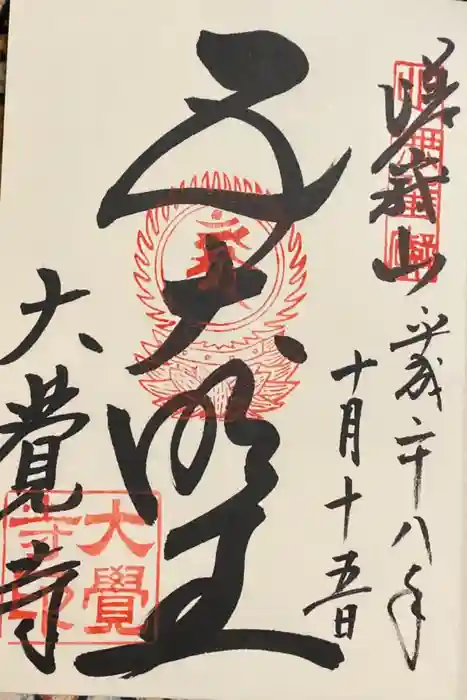 嵯峨山
平成二十八年
十月十五日
五大明王
大覺寺
大覺
寺印